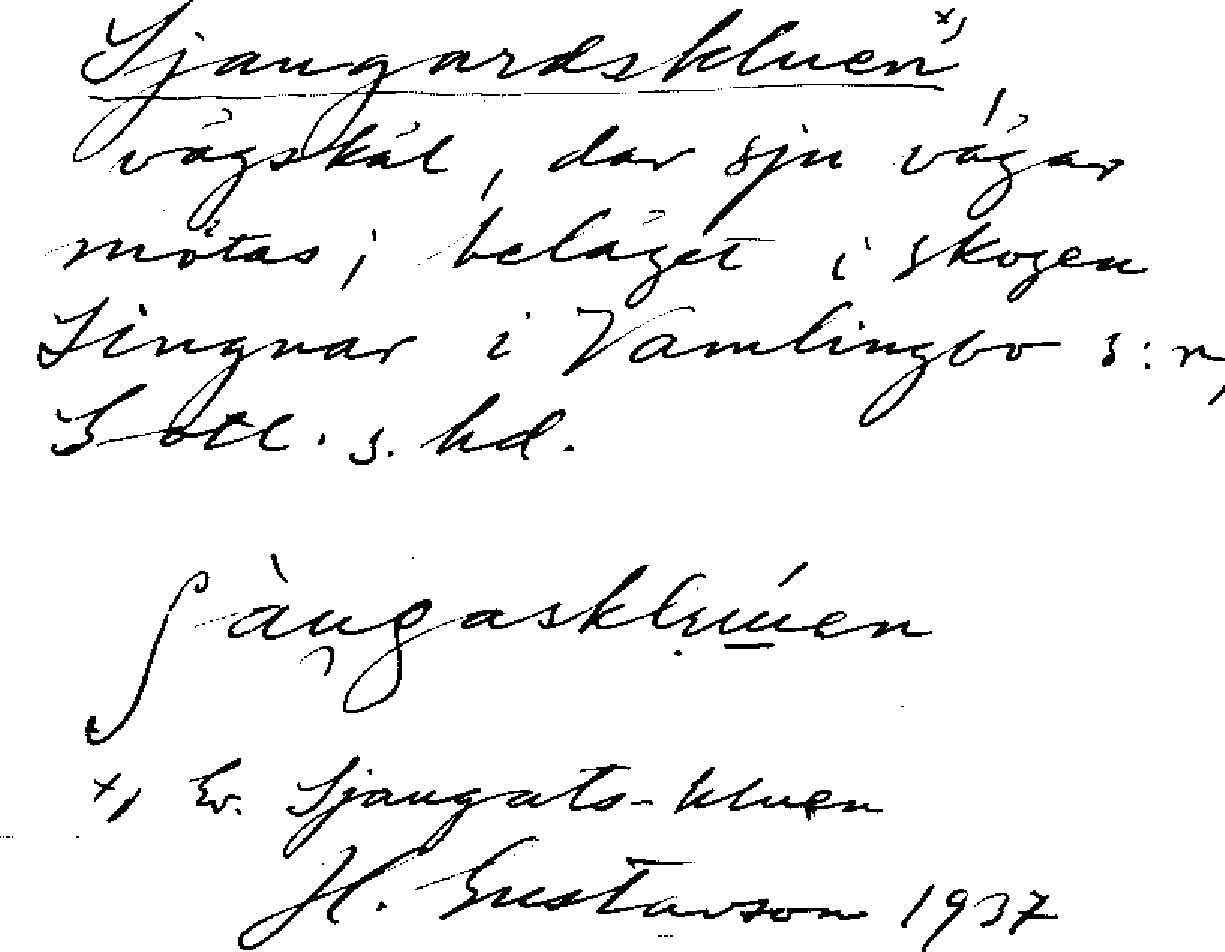 Sjaugardskluen x)
vägskäl, där sju vägar
mötas; beläget i skogen
Lingvar i Vamlingbo s:n,
Gotl. s. hd.
ʃàu̯gasklu̇́en
x) Ev. Sjaugats-kluen
H. Gustavson 1937